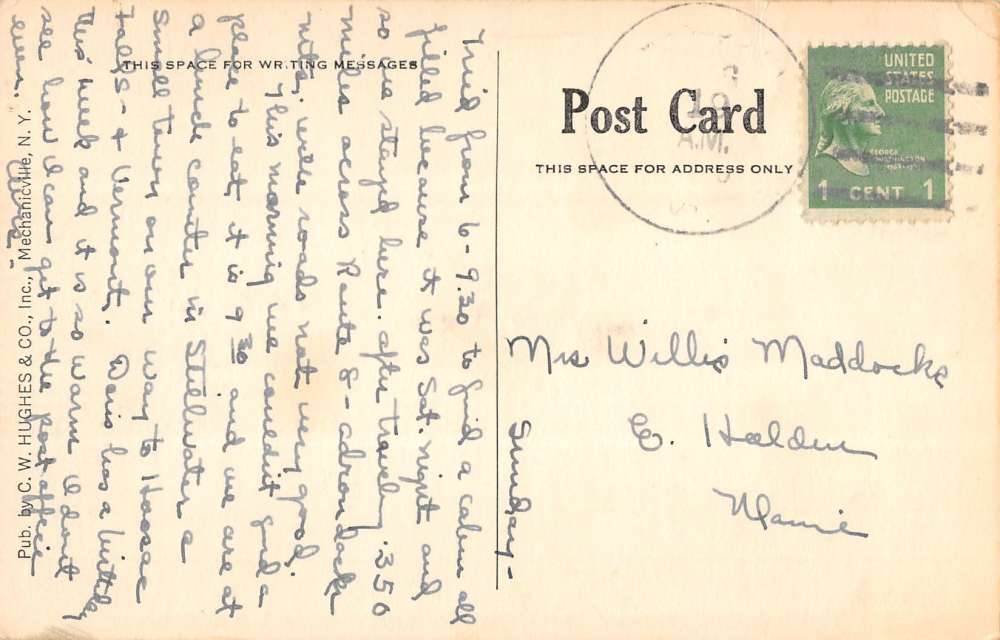 THIS SPACE FOR WRITING MESSAGES
Post Card
THIS SPACE FOR ADDRESS ONLY
UNITED
STATES
POSTAGE
GEORGE
WASHINGTON
1 CENT 1
A.M.
Sunday -
Tried from 6 - 9.30 to find a cabin all
filled because it was Sat. night and
so we stayed here. after traveling 350
miles across Route 8 - adrondacks
mts, with roads not very good.
This morning we couldn't find a
place to eat, it is 9 30 and we are at
a lunch counter in Stillwater a
small town on our way to Hoosac
Falls - + Vermont. Doris has a birthday
this week and it is so warm I don't
see how I can get to the post office
even.
Mrs Willis Maddocks
E. Holden
Maine
Pub. by C. W. HUGHES & CO., Inc., Mechanicville, N. Y.